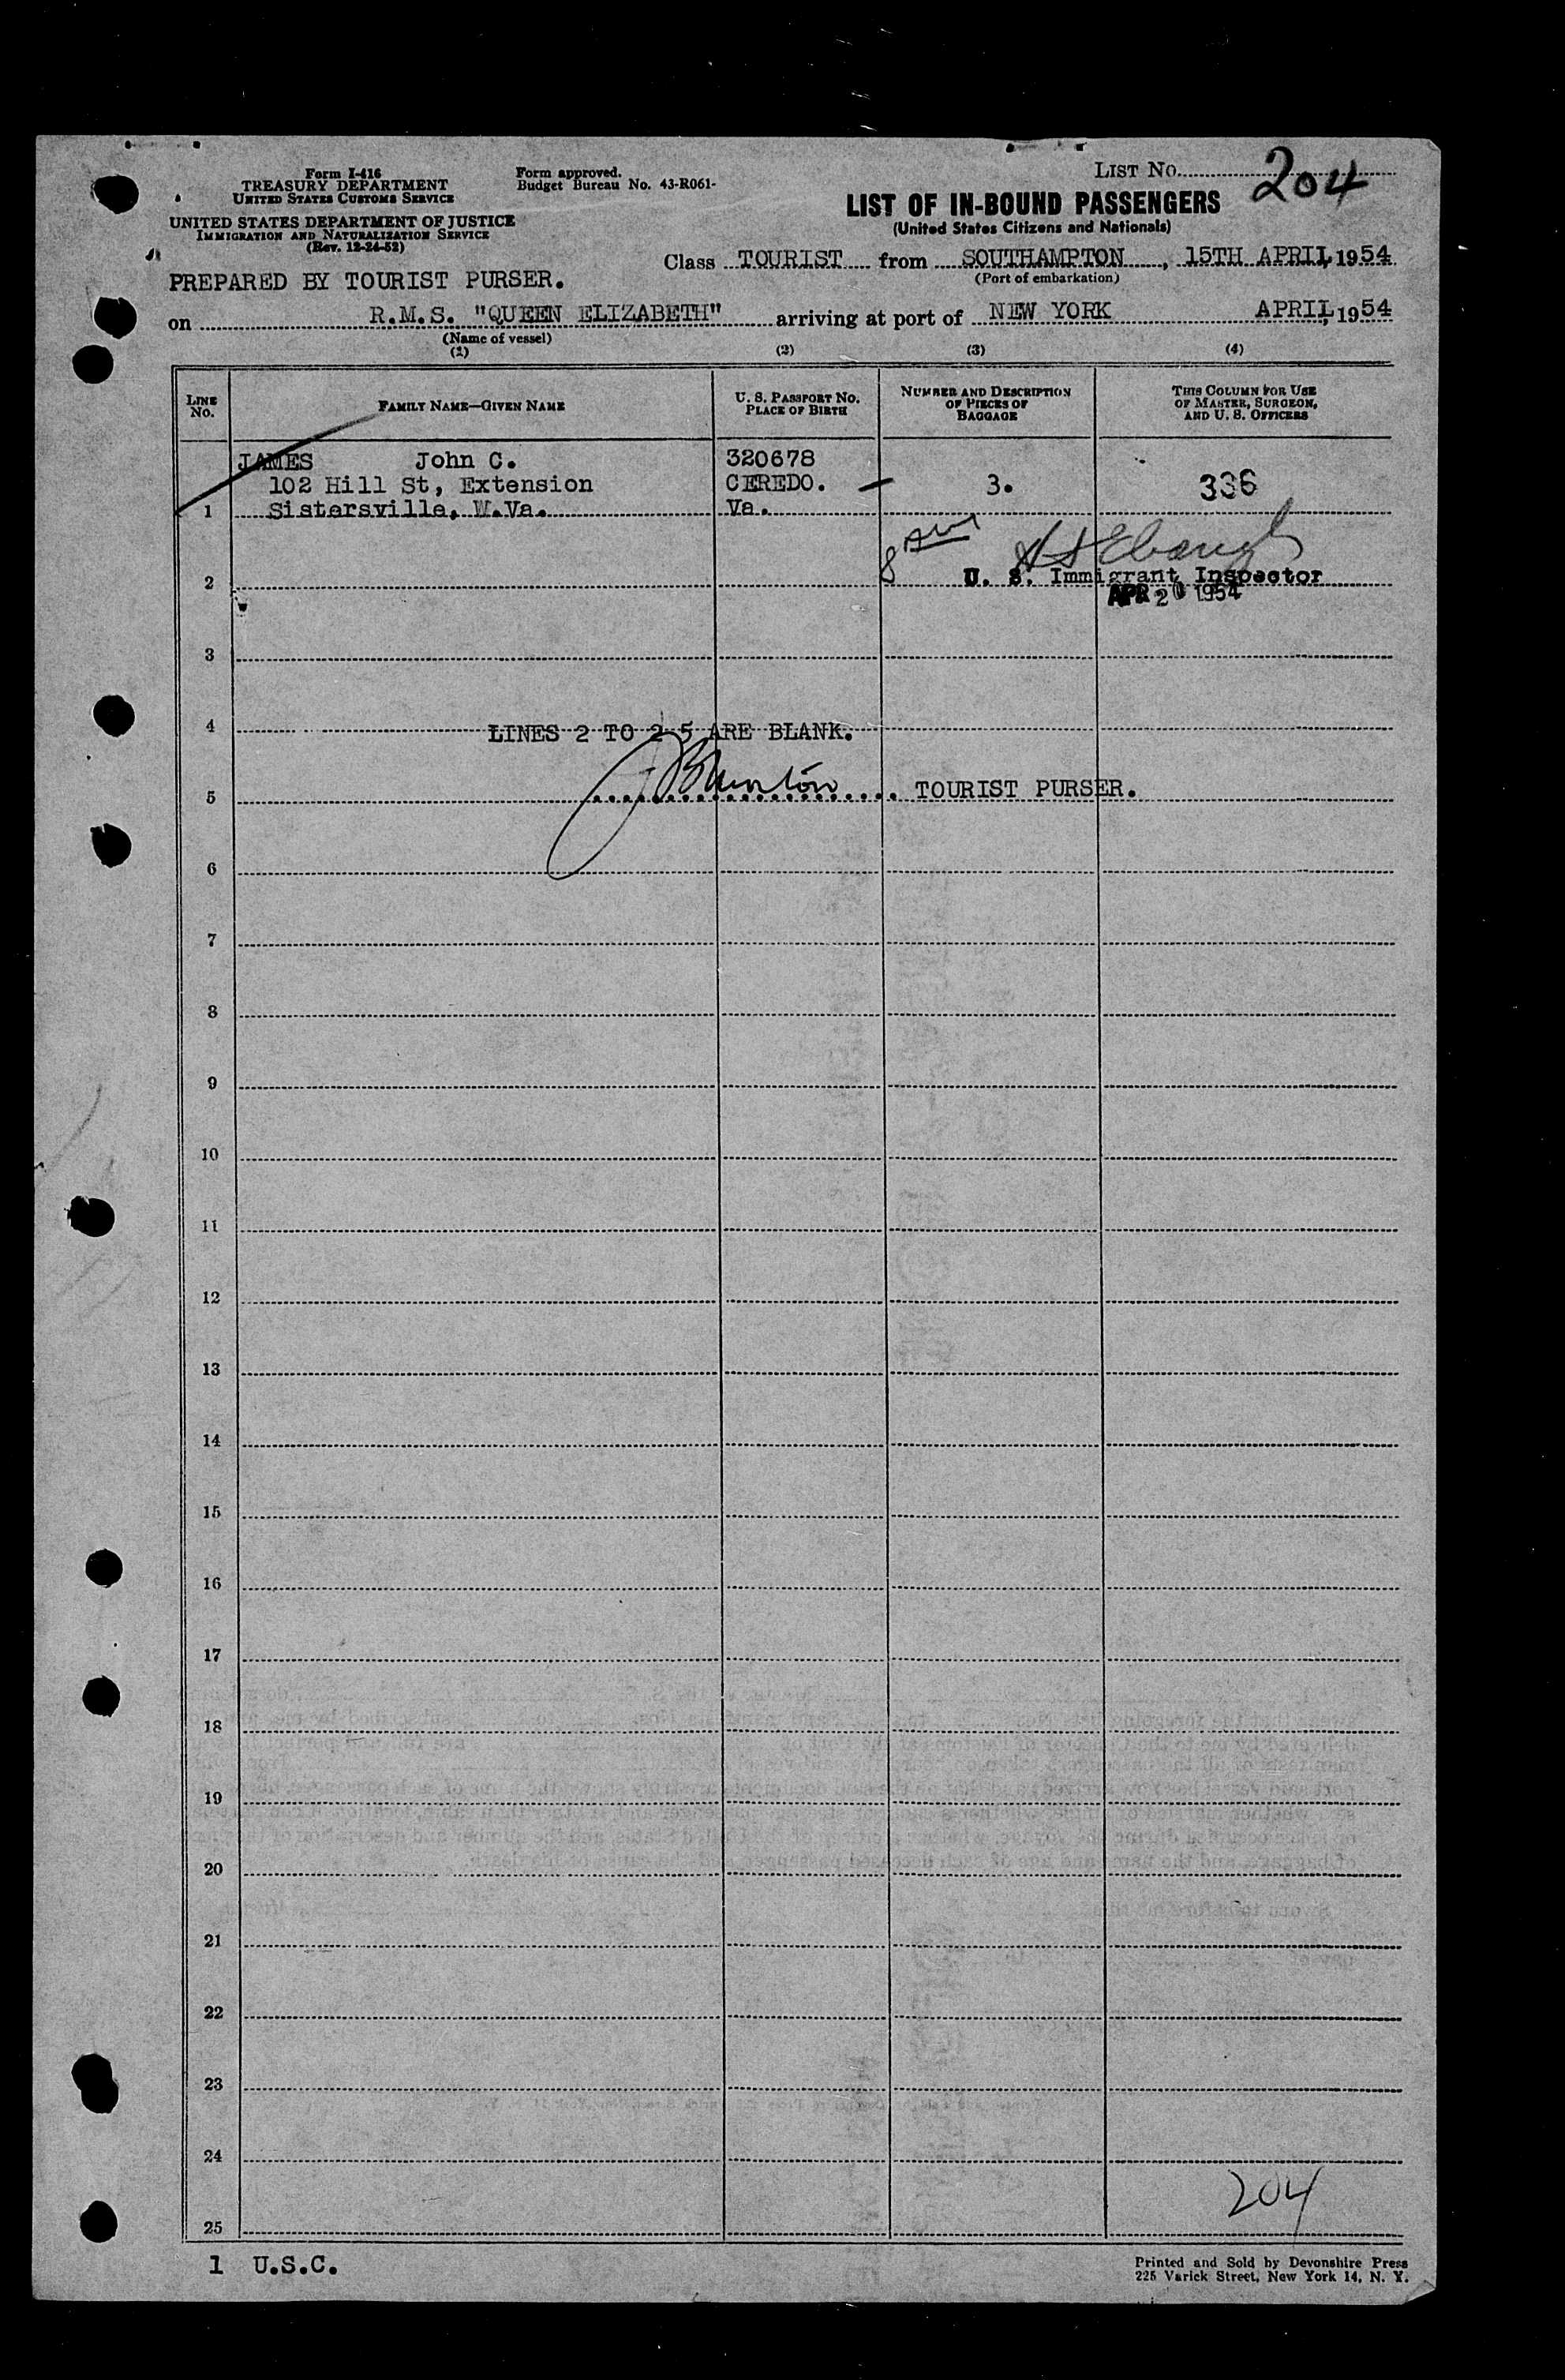 Form I-416
TREASURY DEPARTMENT
UNITED STATES CUSTOMS SERVICE
UNITED STATES DEPARTMENT OF JUSTICE
IMMIGRATION AND NATURALIZATION SERVICE
(Rev. 12-24-52)
Form approved.
Budget Bureau No. 43-R061-
LIST NO. 204
LIST OF IN-BOUND PASSENGERS
(United States Citizens and Nationals)
Class TOURIST from SOUTHAMPTON, 15TH APRIL, 1954
(Port of embarkation)
PREPARED BY TOURIST PURSER.
on R.M.S. "QUEEN ELIZABETH" arriving at port of NEW YORK APRIL, 1954
(Name of vessel)
(1) (2) (3) (4)
LINE NO. FAMILY NAME—GIVEN NAME U. S. PASSPORT NO. PLACE OF BIRTH NUMBER AND DESCRIPTION OF PIECES OF BAGGAGE THIS COLUMN FOR USE OF MASTER, SURGEON, AND U. S. OFFICERS
JAMES John C. 320678
102 Hill St, Extension CEREDO. — 3. 336
1 Sistersville, W.Va. Va.
8
2 U. S. Immigrant Inspector
APR 20 1954
3
4 LINES 2 TO 25 ARE BLANK.
5 TOURIST PURSER.
6
7
8
9
10
11
12
13
14
15
16
17
18
19
20
21
22
23
24
204
25
1 U.S.C.
Printed and Sold by Devonshire Press
225 Varick Street, New York 14, N. Y.